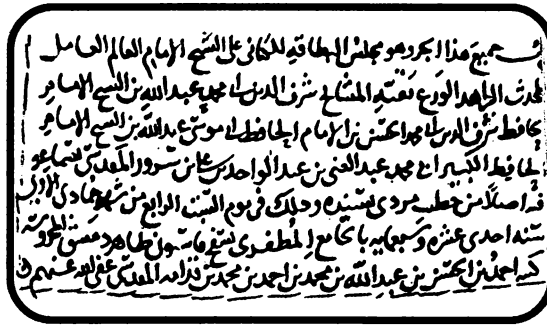 جميع هذا الجزء وهو مجلس البطاقة للكناني على الشيخ الإمام العالم العامل
المحدث الزاهد الورع بقية المشايخ شرف الدين ابي محمد عبد الله بن الشيخ الإمام
الحافظ شرف الدين ابي محمد الحسن بن الإمام الحافظ ابي موسى عبد الله بن الشيخ الإمام
الحافظ الكبير ابي محمد عبد الغني بن عبد الواحد بن علي بن سرور المقدسي بسماعه
فيه اصلا من خطيب مردى بسنده وذلك في يوم السبت الرابع من شهر جمادى الأولى
سنة احدى عشرة وسبعمايه بالجامع المظفري بسفح قاسيون ظاهر دمشق المحروسة
كتبه احمد بن الحسن بن عبد الله بن محمد بن احمد بن محمد بن قدامه المقدسي عفى الله عنهم